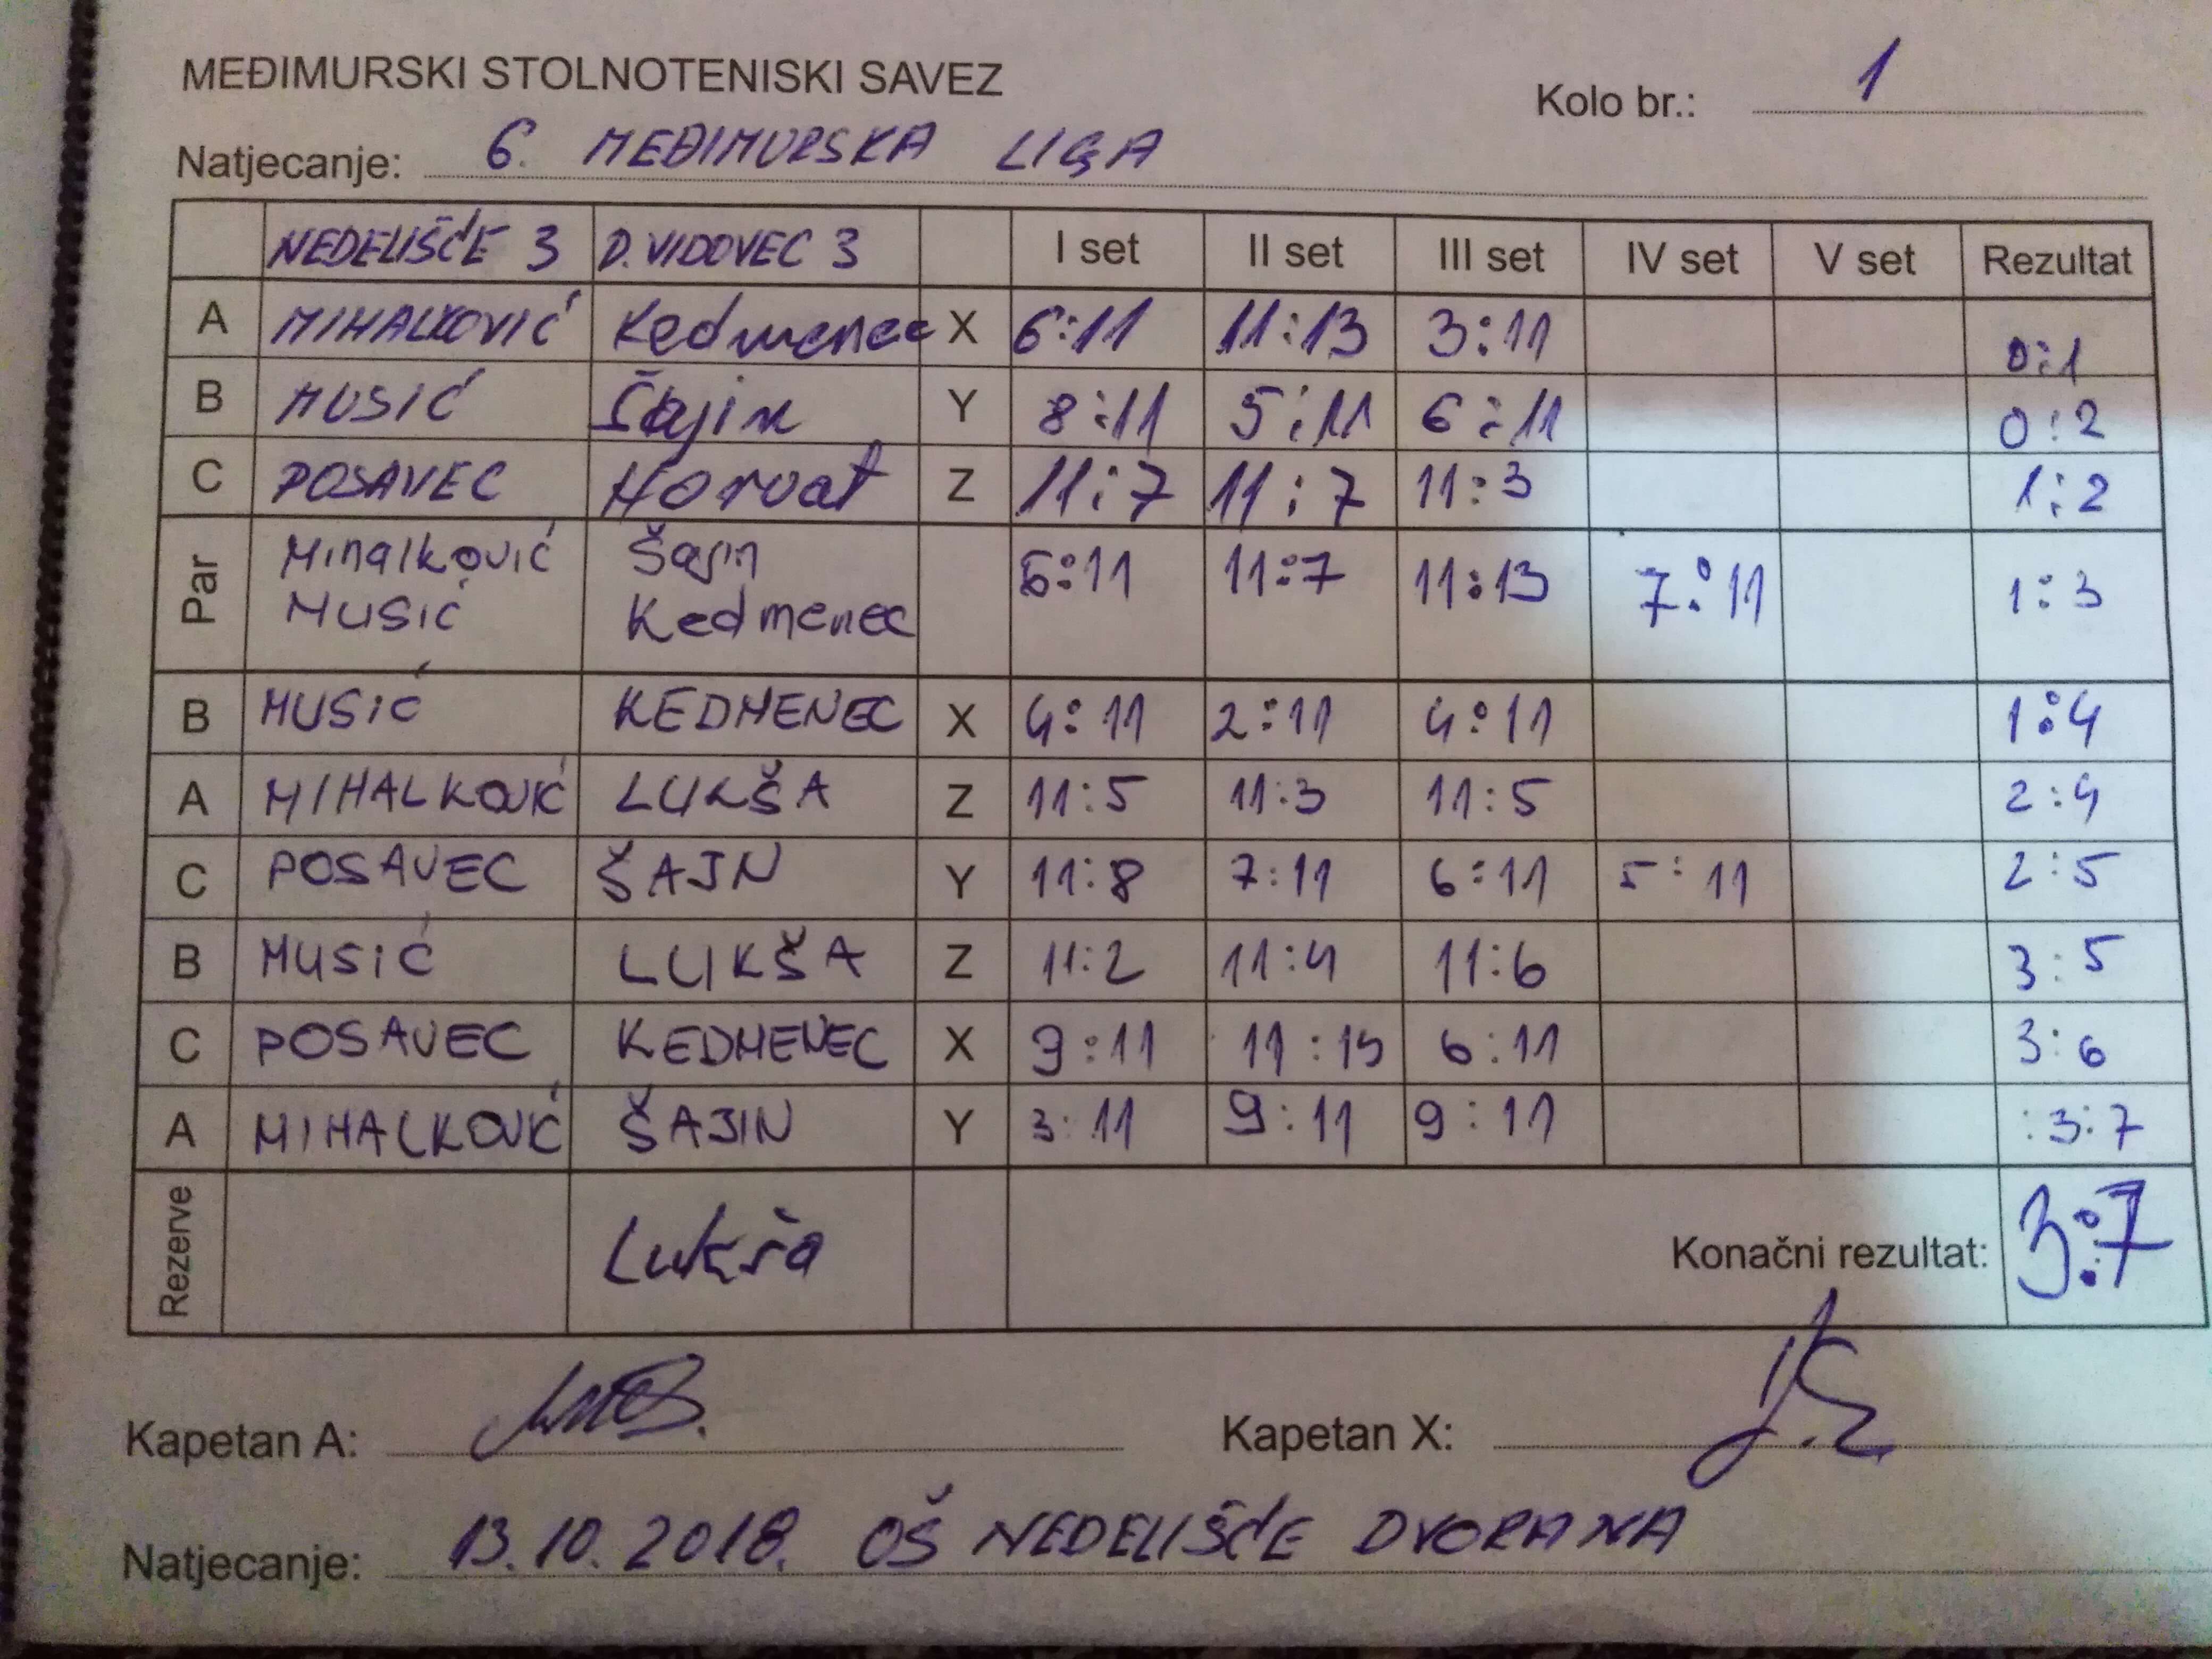 MEĐIMURSKI STOLNOTENISKI SAVEZ
Kolo br.: 1
Natjecanje: 6. MEĐIMURSKA LIGA
NEDELIŠĆE 3 D. VIDOVEC 3 I set II set III set IV set V set Rezultat
A MIHALKOVIĆ Kedmenec X 6:11 11:13 3:11 0:1
B MUSIĆ Šajin Y 8:11 5:11 6:11 0:2
C POSAVEC Horvat Z 11:7 11:7 11:3 1:2
Par Mihalković Šajn 11:7 11:13 7:11 1:3
MUSIĆ Kedmenec
B MUSIĆ KEDMENEC X 4:11 2:11 4:11 1:4
A MIHALKOVIĆ LUKŠA Z 11:5 11:3 11:5 2:4
C POSAVEC ŠAJN Y 11:8 7:11 6:11 5:11 2:5
B MUSIĆ LUKŠA Z 11:2 11:4 11:6 3:5
C POSAVEC KEDMENEC X 9:11 11:15 6:11 3:6
A MIHALKOVIĆ ŠAJIN Y 3:11 9:11 9:11 3:7
Rezerve Lukša Konačni rezultat: 3:7
Kapetan A: Kapetan X:
Natjecanje: 13.10.2018. OŠ NEDELIŠĆE DVORANA